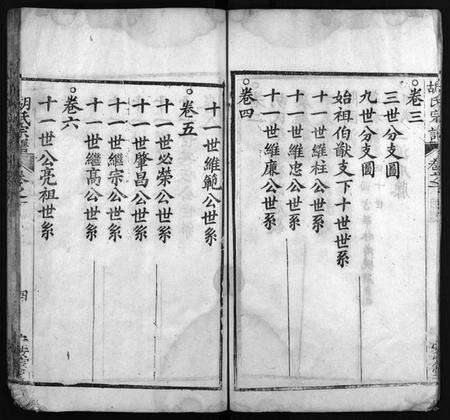 胡氏宗譜
卷三
三世分支圖
九世分支圖
始祖伯猷支下十世世系
十一世維柱公世系
十一世維忠公世系
十一世維廉公世系
卷四
十一世維範公世系
卷五
十一世必榮公世系
十一世肇昌公世系
十一世繼宗公世系
十一世繼高公世系
卷六
十一世公亮祖世系
胡氏宗譜
四